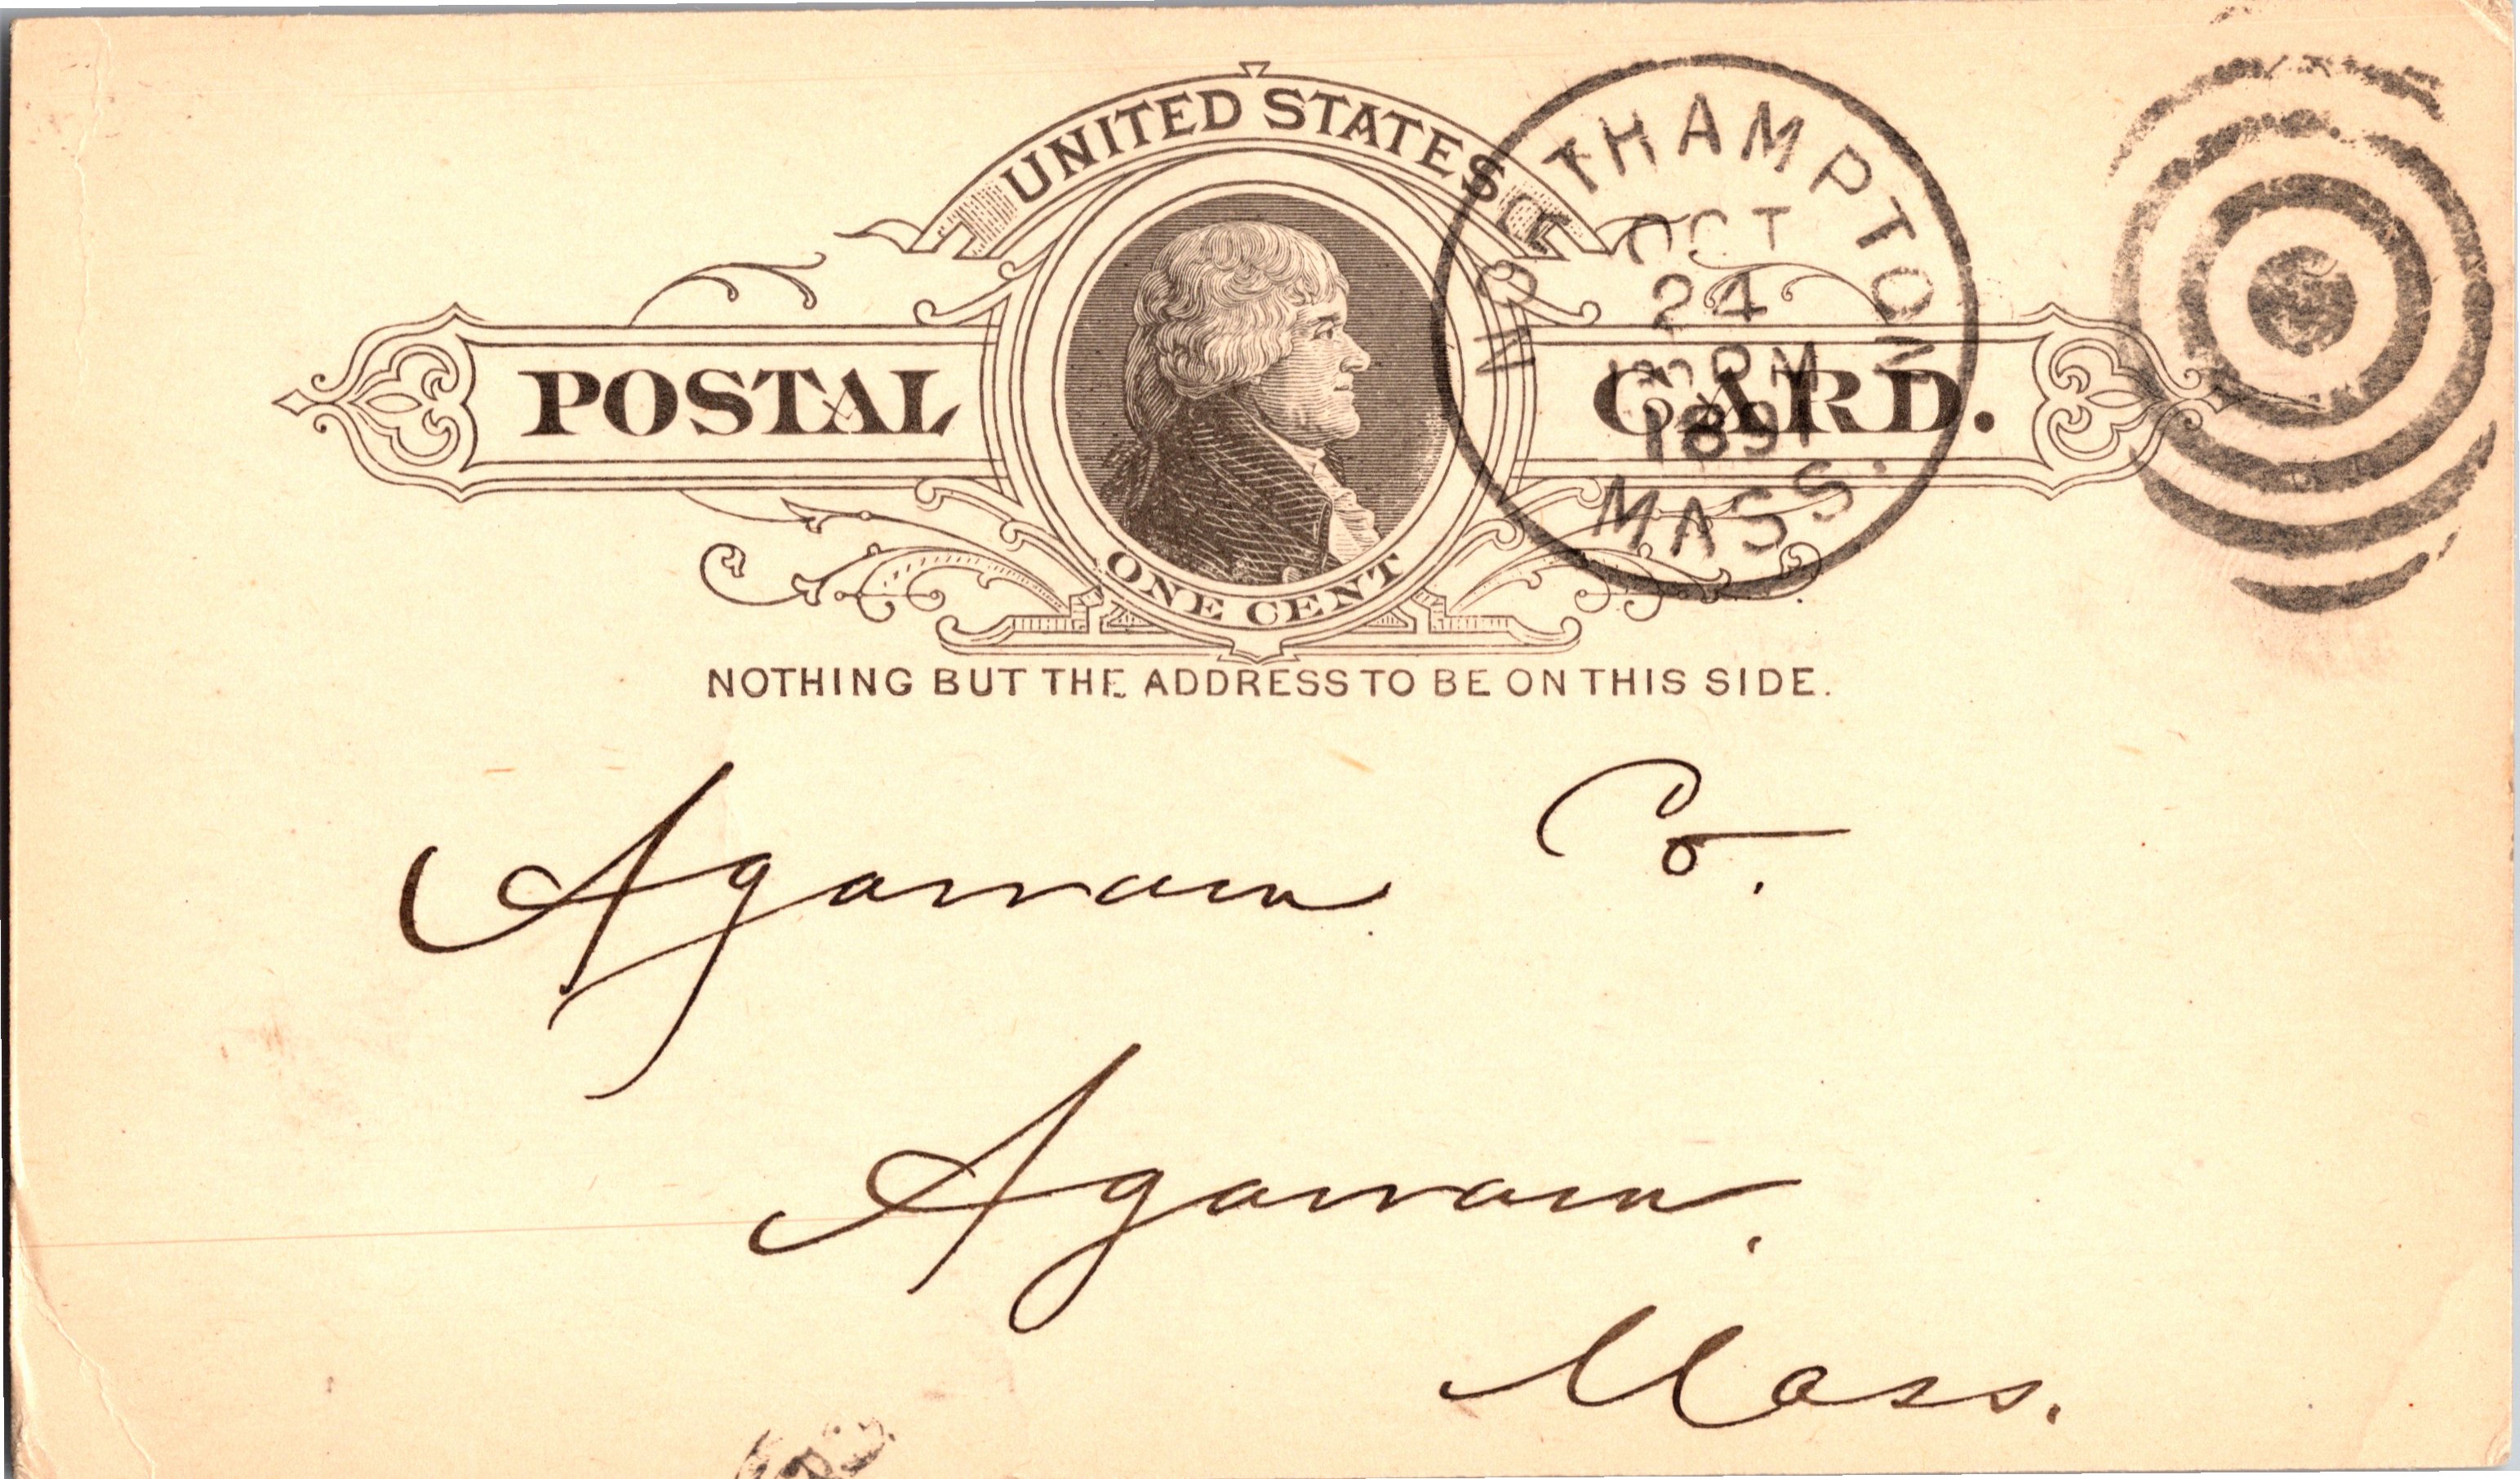 UNITED STATES
POSTAL CARD.
ONE CENT
NORTHAMPTON
OCT
24
PM
1891
MASS.
NOTHING BUT THE ADDRESS TO BE ON THIS SIDE.
Agawam Co.
Agawam.
Mass.